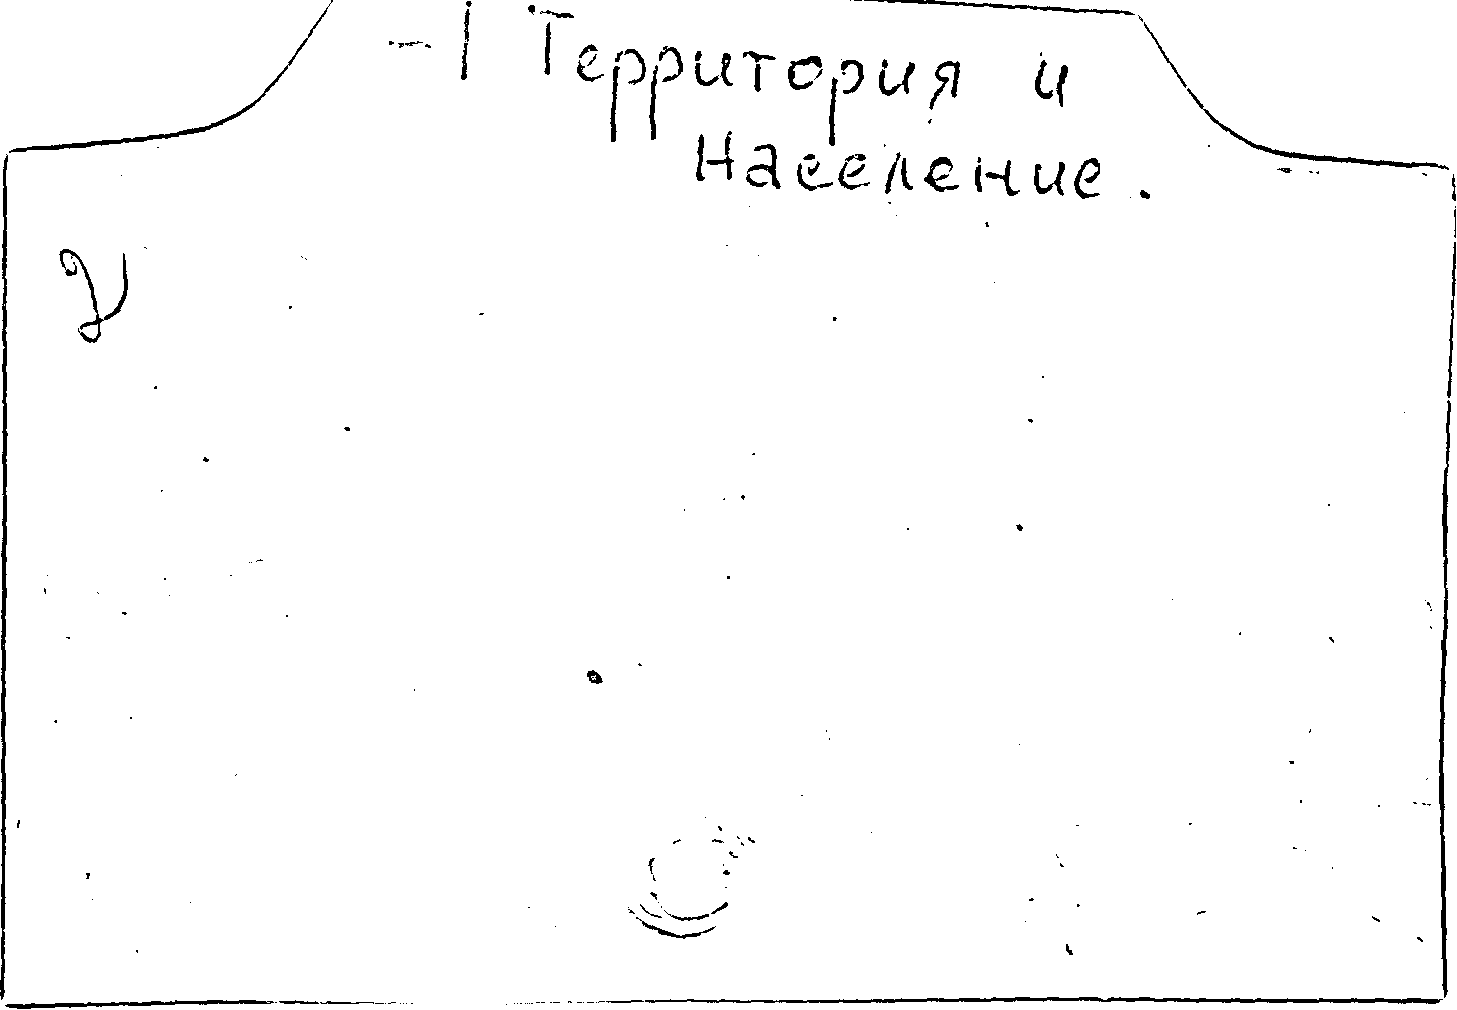 -I Территория и
Население.